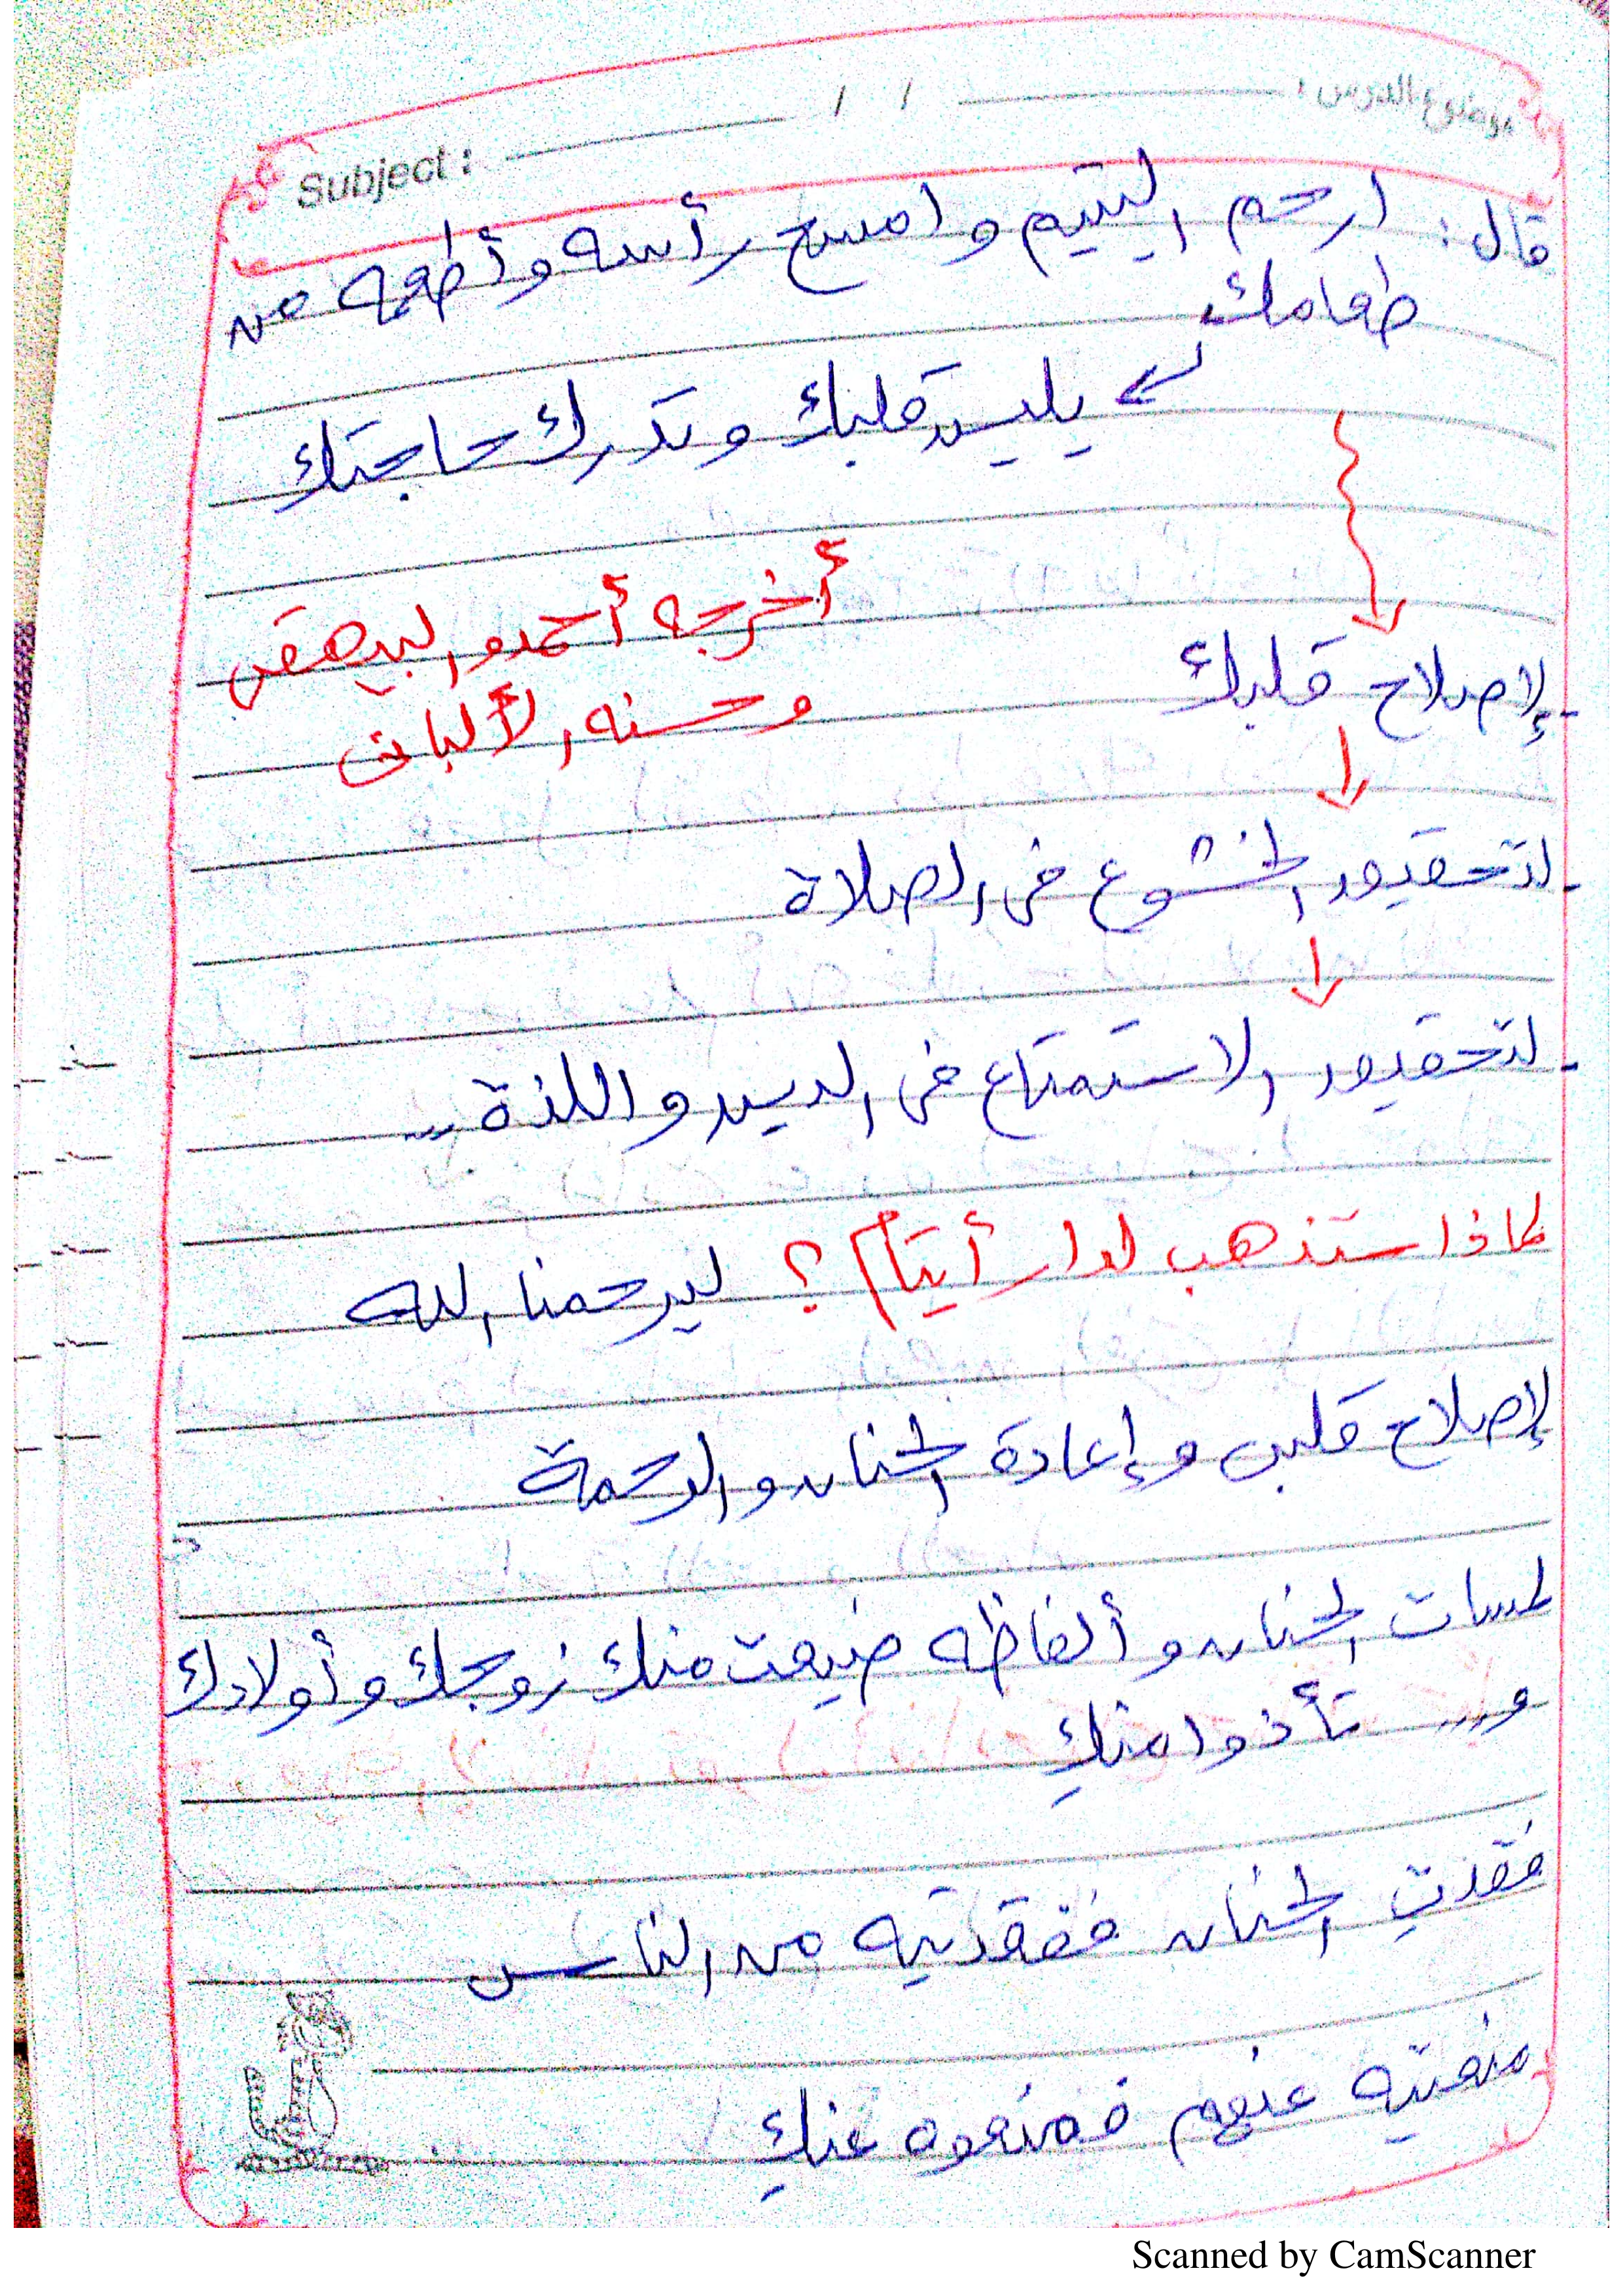 موضوع الدرس : / / Subject :
قال : ارحم اليتيم وامسح رأسه وأطعمه من
طعامك
يلين قلبك وتدرك حاجتك
أخرجه أحمد والبيهقى
وحسنه الألبانى
- لإصلاح قلبك
- لتحقيق الخشوع فى الصلاة
- لتحقيق الاستمتاع فى الدين واللذة ...
لماذا ستذهب لدار أيتام ؟ ليرحمنا الله
لإصلاح قلبى وإعادة الحنان والرحمة
لمسات الحنان وألفاظه ضيعت منك زوجك وأولادك
و... تأذوا منكِ
فقدتِ الحنان ففقدتيه من الناس
منعتيه عنهم فمنعوه عنكِ
Scanned by CamScanner